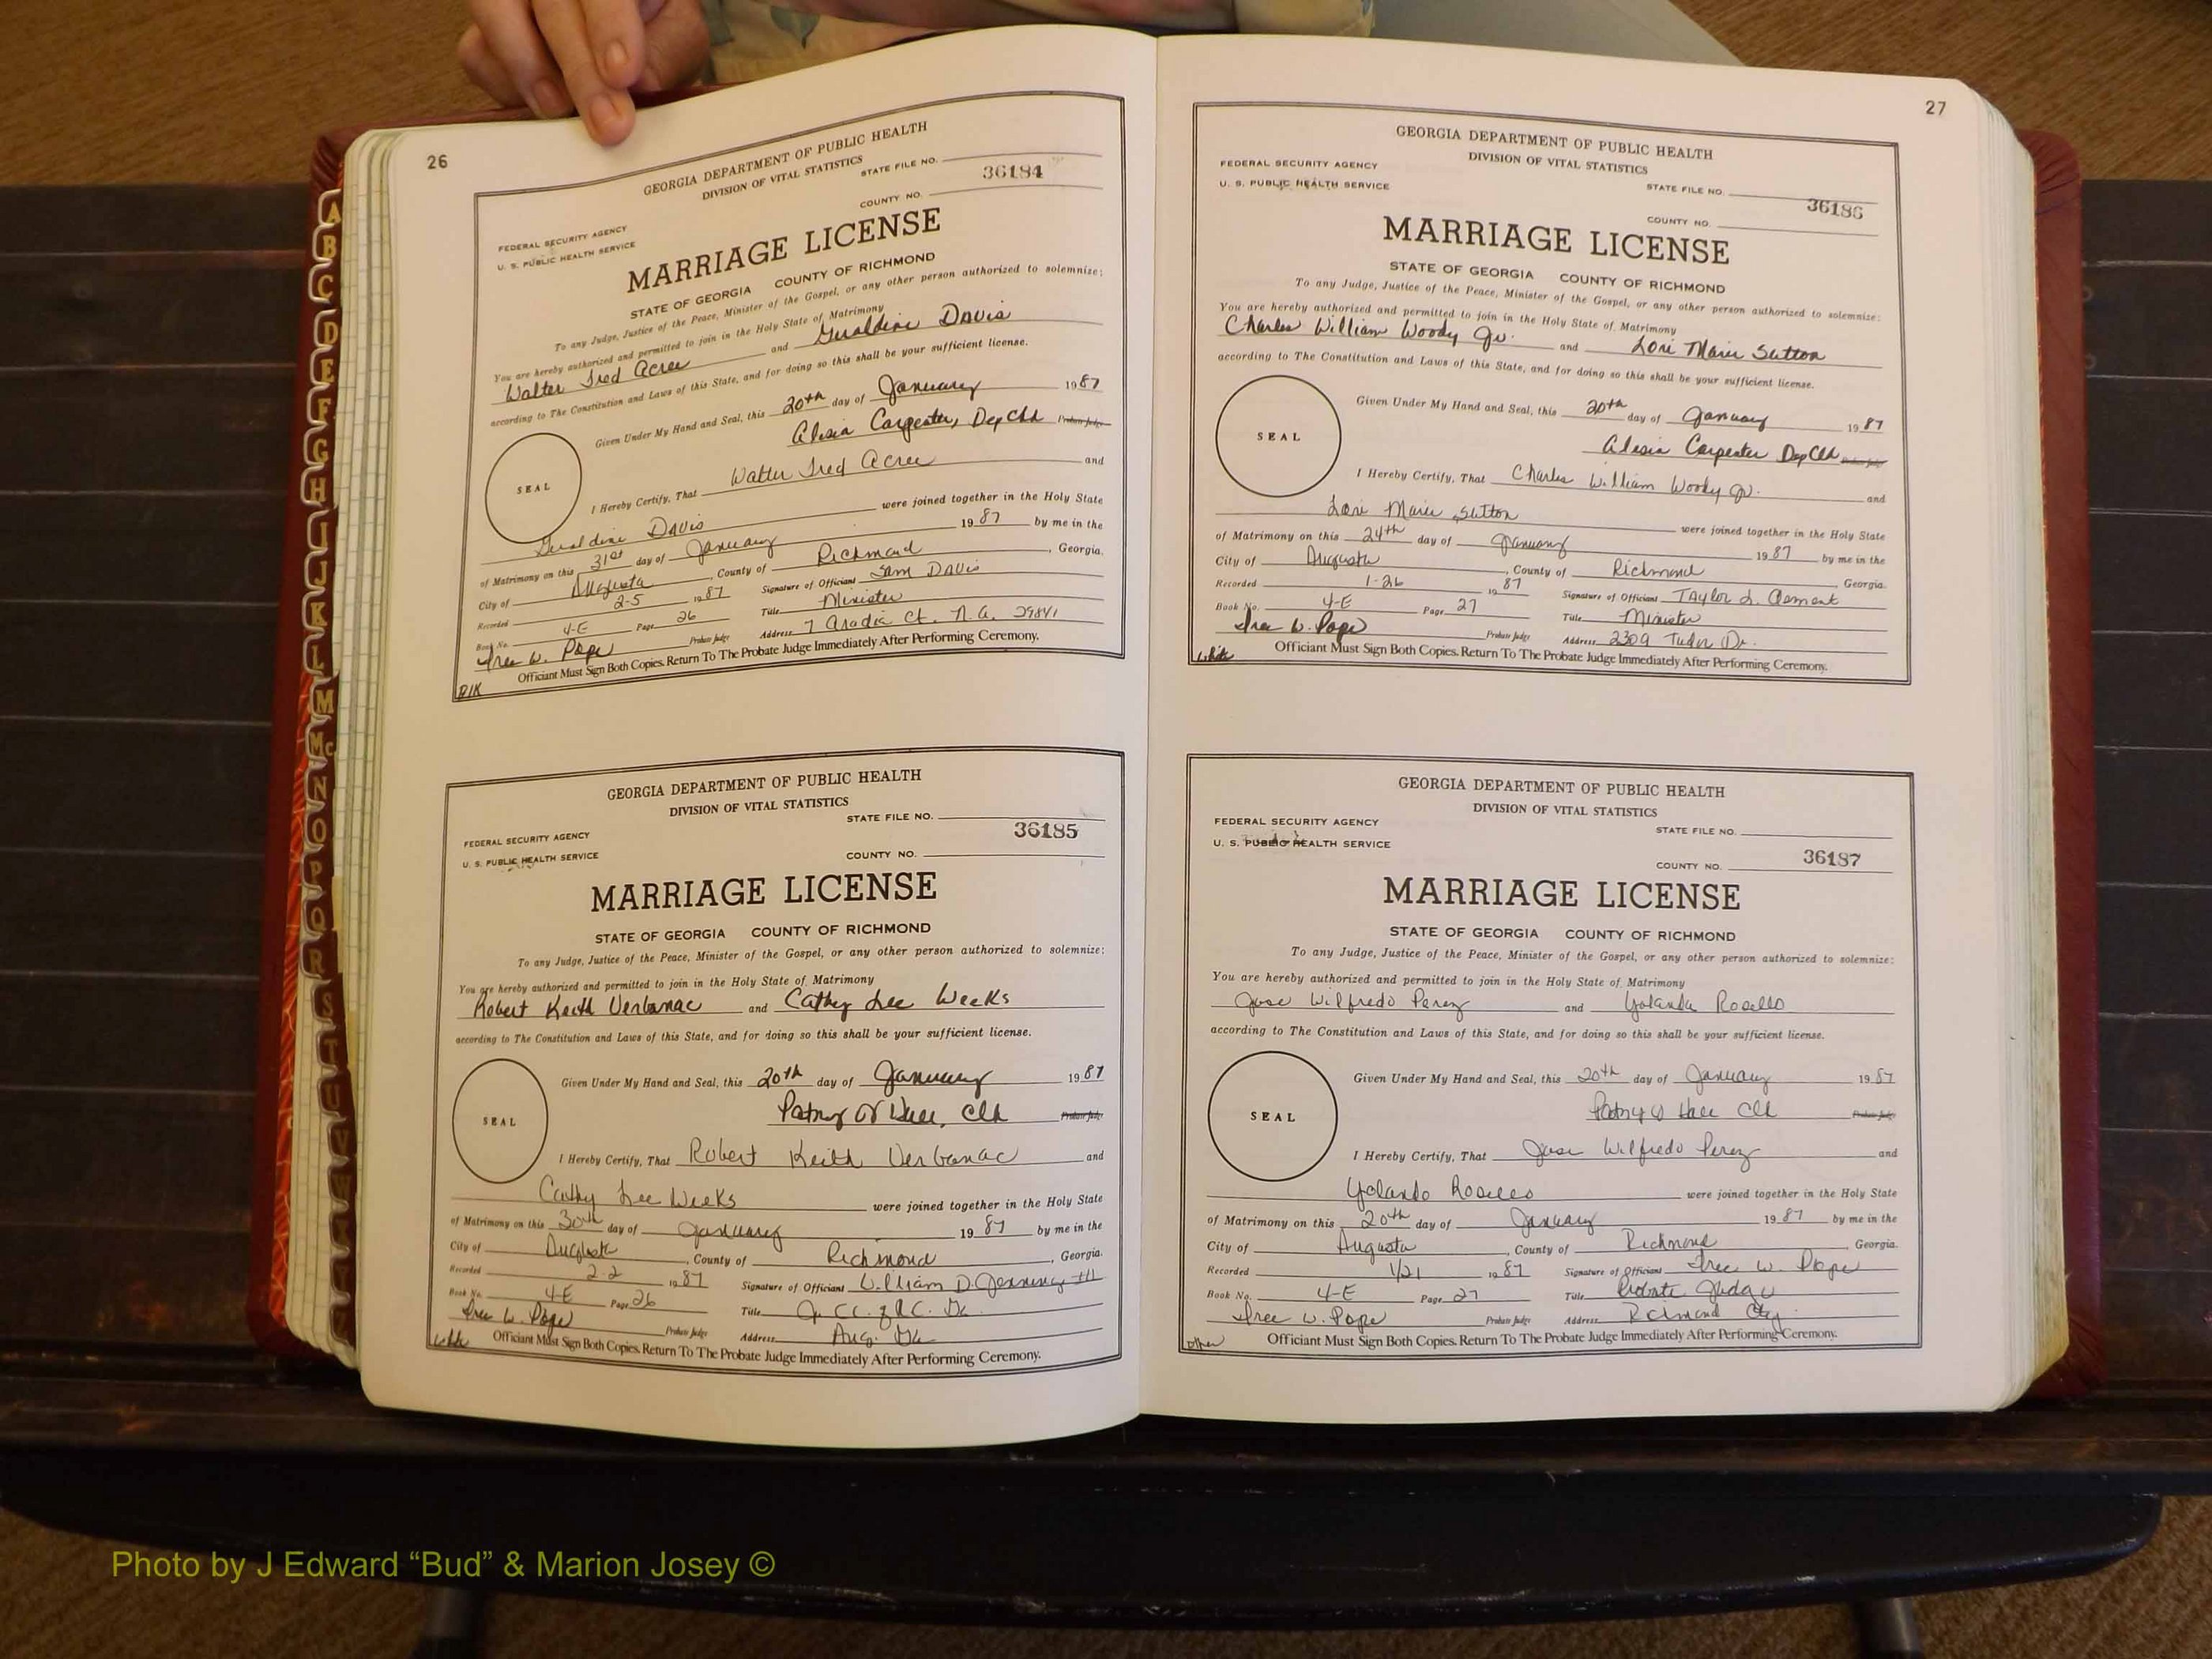 26
GEORGIA DEPARTMENT OF PUBLIC HEALTH
DIVISION OF VITAL STATISTICS
STATE FILE NO.
36184
COUNTY NO.
FEDERAL SECURITY AGENCY
U. S. PUBLIC HEALTH SERVICE
MARRIAGE LICENSE
STATE OF GEORGIA COUNTY OF RICHMOND
To any Judge, Justice of the Peace, Minister of the Gospel, or any other person authorized to solemnize:
You are hereby authorized and permitted to join in the Holy State of Matrimony
Walter Fred Acree and Geraldine Davis
according to The Constitution and Laws of this State, and for doing so this shall be your sufficient license.
Given Under My Hand and Seal, this 20th day of January 1987
Alesia Carpenter, Dep Clk Probate Judge
SEAL
I Hereby Certify, That Walter Fred Acree and
Geraldine Davis were joined together in the Holy State
of Matrimony on this 31st day of January 1987 by me in the
City of Augusta, County of Richmond, Georgia.
Recorded 2-5 1987 Signature of Officiant Sam Davis
Book No. 4-E Page 26 Title Minister
Iree W. Pope Probate Judge Address 7 Ct. N.A. 29841
Officiant Must Sign Both Copies. Return To The Probate Judge Immediately After Performing Ceremony.
Blk
GEORGIA DEPARTMENT OF PUBLIC HEALTH
DIVISION OF VITAL STATISTICS
STATE FILE NO.
36185
FEDERAL SECURITY AGENCY
U. S. PUBLIC HEALTH SERVICE
COUNTY NO.
MARRIAGE LICENSE
STATE OF GEORGIA COUNTY OF RICHMOND
To any Judge, Justice of the Peace, Minister of the Gospel, or any other person authorized to solemnize:
You are hereby authorized and permitted to join in the Holy State of Matrimony
Robert Keith Verbanac and Cathy Lee Weeks
according to The Constitution and Laws of this State, and for doing so this shall be your sufficient license.
Given Under My Hand and Seal, this 20th day of January 1987
Clk Probate Judge
SEAL
I Hereby Certify, That Robert Keith Verbanac and
Cathy Lee Weeks were joined together in the Holy State
of Matrimony on this 30th day of January 1987 by me in the
City of Augusta, County of Richmond, Georgia.
Recorded 2-2 1987 Signature of Officiant William D. Jennings III
Book No. 4-E Page 26 Title
Iree W. Pope Probate Judge Address Aug. Ga
White Officiant Must Sign Both Copies. Return To The Probate Judge Immediately After Performing Ceremony.
27
GEORGIA DEPARTMENT OF PUBLIC HEALTH
DIVISION OF VITAL STATISTICS
FEDERAL SECURITY AGENCY
U. S. PUBLIC HEALTH SERVICE
STATE FILE NO.
36186
COUNTY NO.
MARRIAGE LICENSE
STATE OF GEORGIA COUNTY OF RICHMOND
To any Judge, Justice of the Peace, Minister of the Gospel, or any other person authorized to solemnize:
You are hereby authorized and permitted to join in the Holy State of Matrimony
Charles William Woody Jr. and Lori Marie Sutton
according to The Constitution and Laws of this State, and for doing so this shall be your sufficient license.
Given Under My Hand and Seal, this 20th day of January 1987
Alesia Carpenter Dep Clk Probate Judge
SEAL
I Hereby Certify, That Charles William Woody Jr. and
Lori Marie Sutton were joined together in the Holy State
of Matrimony on this 24th day of January 1987 by me in the
City of Augusta, County of Richmond Georgia.
Recorded 1-26 1987 Signature of Officiant Taylor L. Clement
Book No. 4-E Page 27 Title Minister
Iree W. Pope Probate Judge Address 2309 Tudor Dr.
White Officiant Must Sign Both Copies. Return To The Probate Judge Immediately After Performing Ceremony.
GEORGIA DEPARTMENT OF PUBLIC HEALTH
DIVISION OF VITAL STATISTICS
FEDERAL SECURITY AGENCY
U. S. PUBLIC HEALTH SERVICE
STATE FILE NO.
36187
COUNTY NO.
MARRIAGE LICENSE
STATE OF GEORGIA COUNTY OF RICHMOND
To any Judge, Justice of the Peace, Minister of the Gospel, or any other person authorized to solemnize:
You are hereby authorized and permitted to join in the Holy State of Matrimony
Jose Wilfredo Perez and Yolanda Rosello
according to The Constitution and Laws of this State, and for doing so this shall be your sufficient license.
Given Under My Hand and Seal, this 20th day of January 1987
Clk Probate Judge
SEAL
I Hereby Certify, That Jose Wilfredo Perez and
Yolando Rosello were joined together in the Holy State
of Matrimony on this 20th day of January 1987 by me in the
City of Augusta, County of Richmond Georgia.
Recorded 1/21 1987 Signature of Officiant Iree W. Pope
Book No. 4-E Page 27 Title Probate Judge
Iree W. Pope Probate Judge Address Richmond Cty.
Other Officiant Must Sign Both Copies. Return To The Probate Judge Immediately After Performing Ceremony.
A
B
C
D
E
F
G
H
I
J
K
L
M
Mc
N
O
P
Q
R
S
T
U
V
W
Photo by J Edward “Bud” & Marion Josey ©